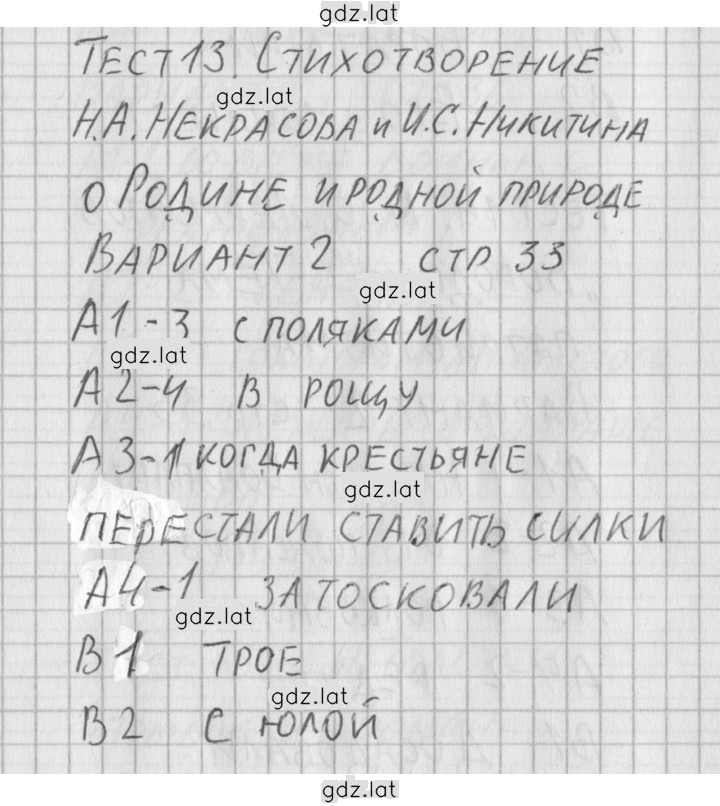 gdz.lat
ТЕСТ 13. СТИХОТВОРЕНИЕ
gdz.lat
Н.А. НЕКРАСОВА И И.С. НИКИТИНА
О РОДИНЕ И РОДНОЙ ПРИРОДЕ
ВАРИАНТ 2 СТР 33
gdz.lat
А1-3 С ПОЛЯКАМИ
gdz.lat
А2-4 В РОЩУ
А3-1 КОГДА КРЕСТЬЯНЕ
gdz.lat
ПЕРЕСТАЛИ СТАВИТЬ СИЛКИ
А4-1 ЗАТОСКОВАЛИ
gdz.lat
В1 ТРОЕ
gdz.lat
В2 С ЮЛОЙ
gdz.lat